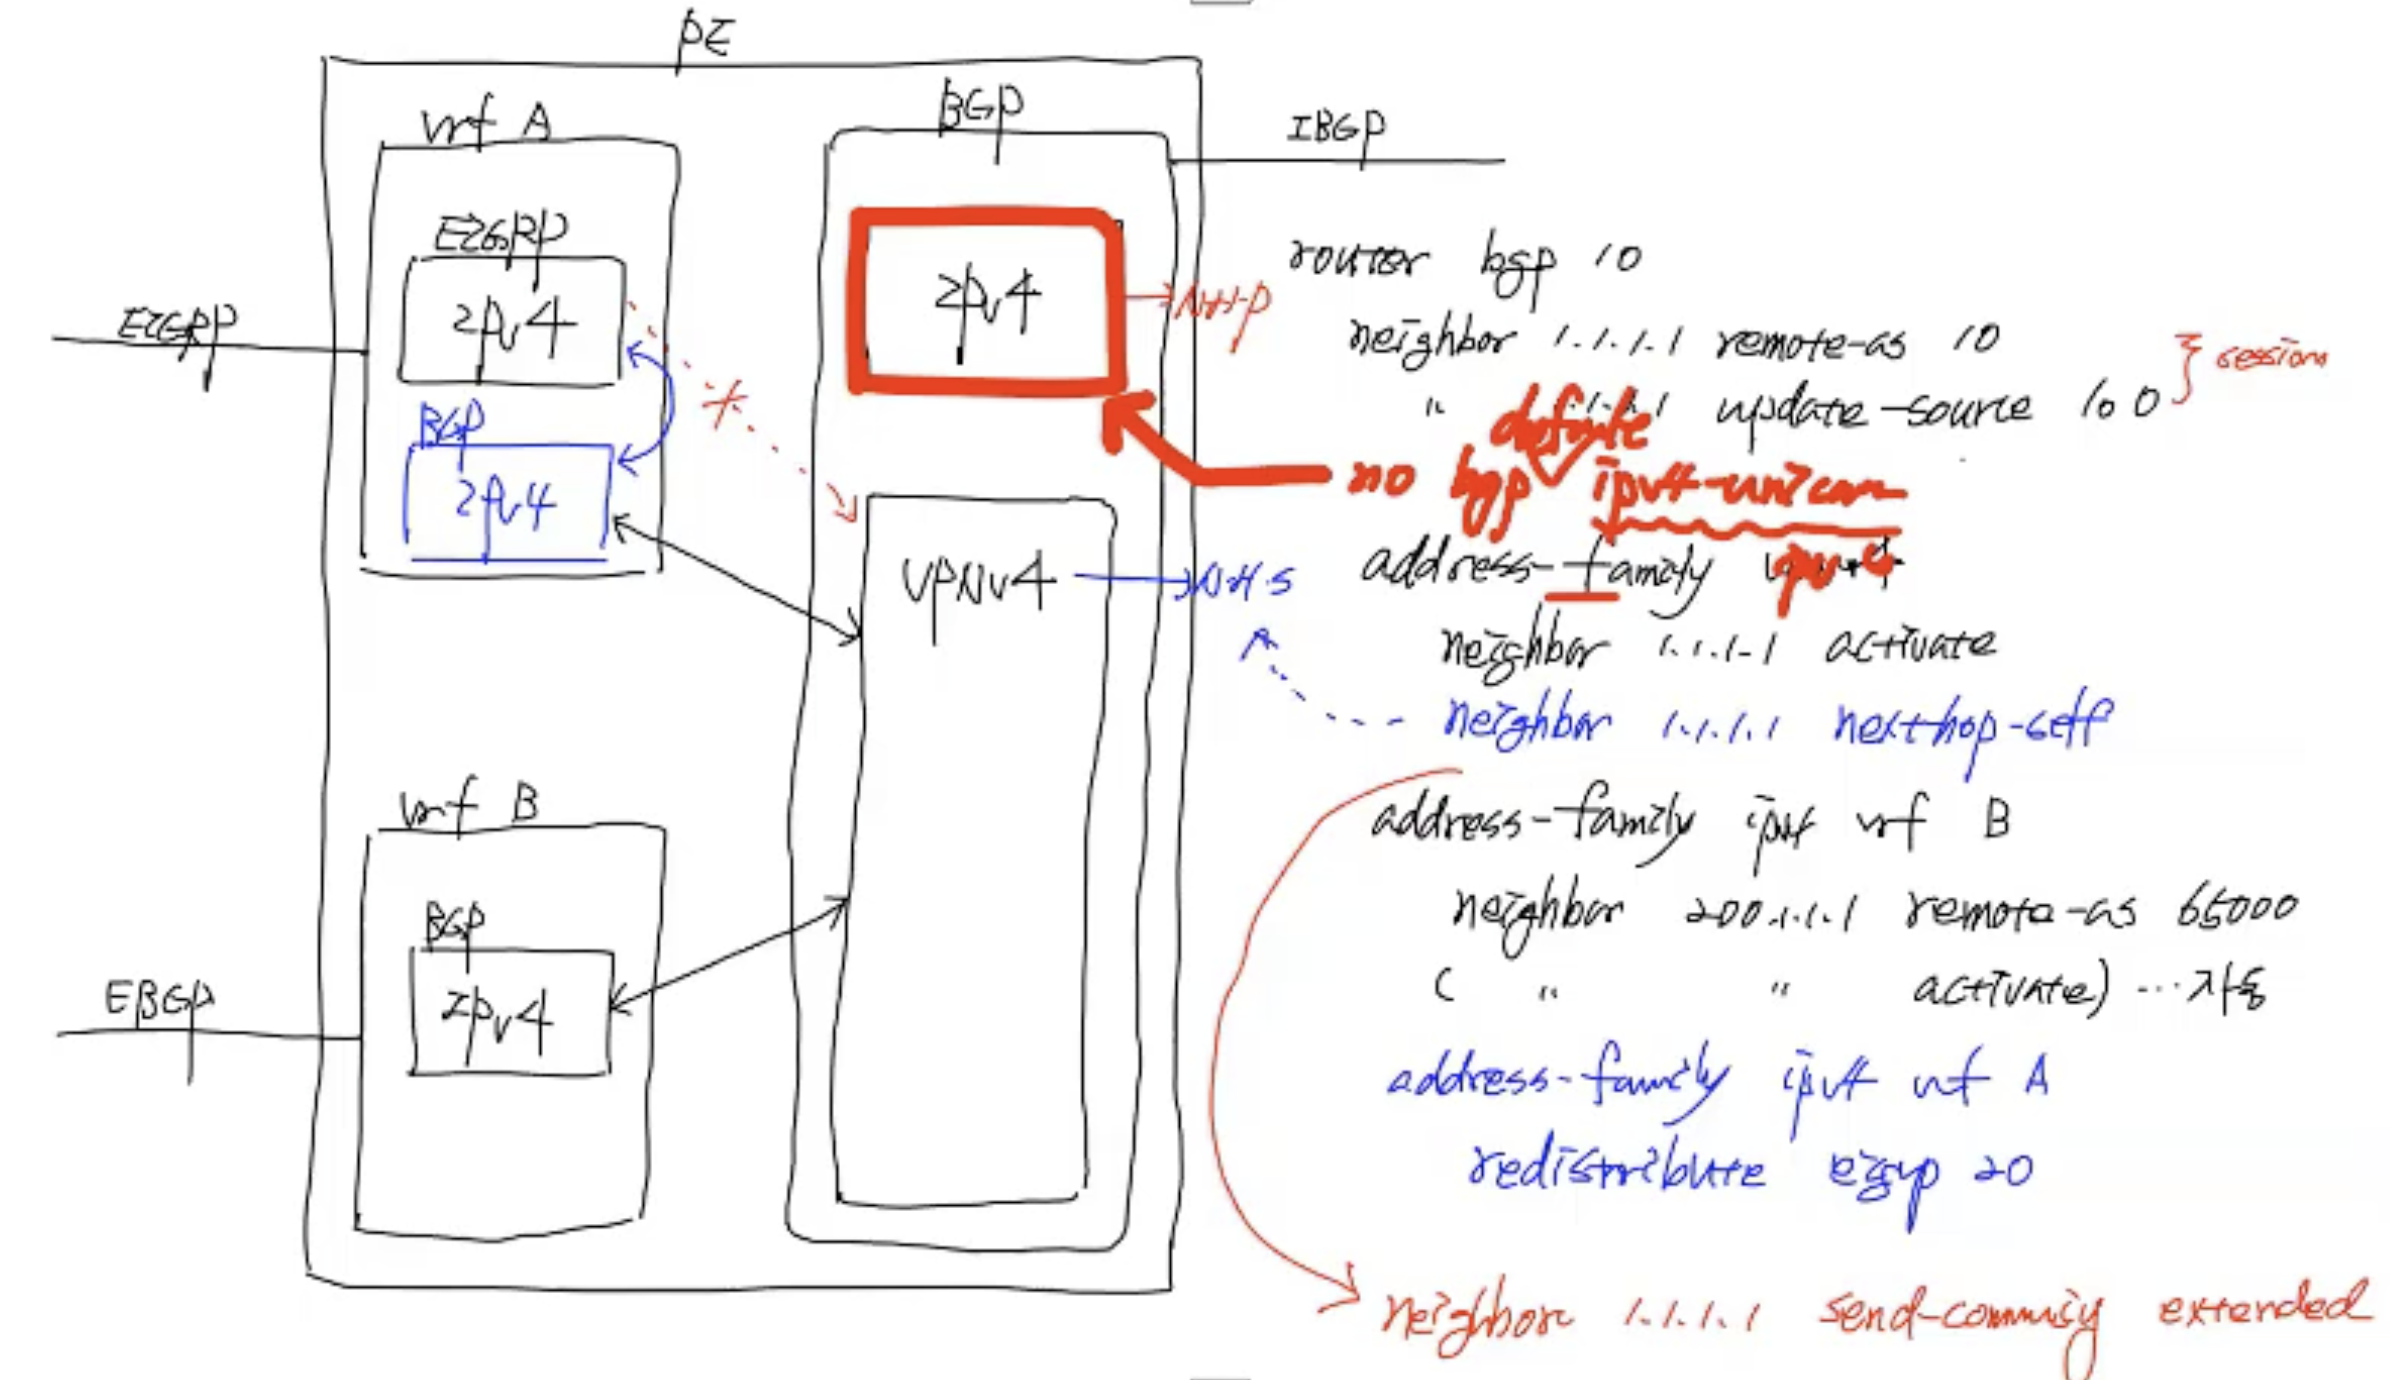 PE
vrf A
BGP
IBGP
EIGRP
IPv4
EIGRP
BGP
IPv4
IPv4
NHP
VPNv4
NHS
vrf B
BGP
IPv4
EBGP
router bgp 10
neighbor 1.1.1.1 remote-as 10
" 1.1.1.1 update-source lo 0
session
no bgp default ipv4-unicas
address-family
neighbor 1.1.1.1 activate
neighbor 1.1.1.1 nexthop-self
address-family ipv4 vrf B
neighbor 200.1.1.1 remote-as 65000
( " " activate) ... 자동
address-family ipv4 vrf A
redistribute eigrp 20
neighbor 1.1.1.1 send-commuity extended